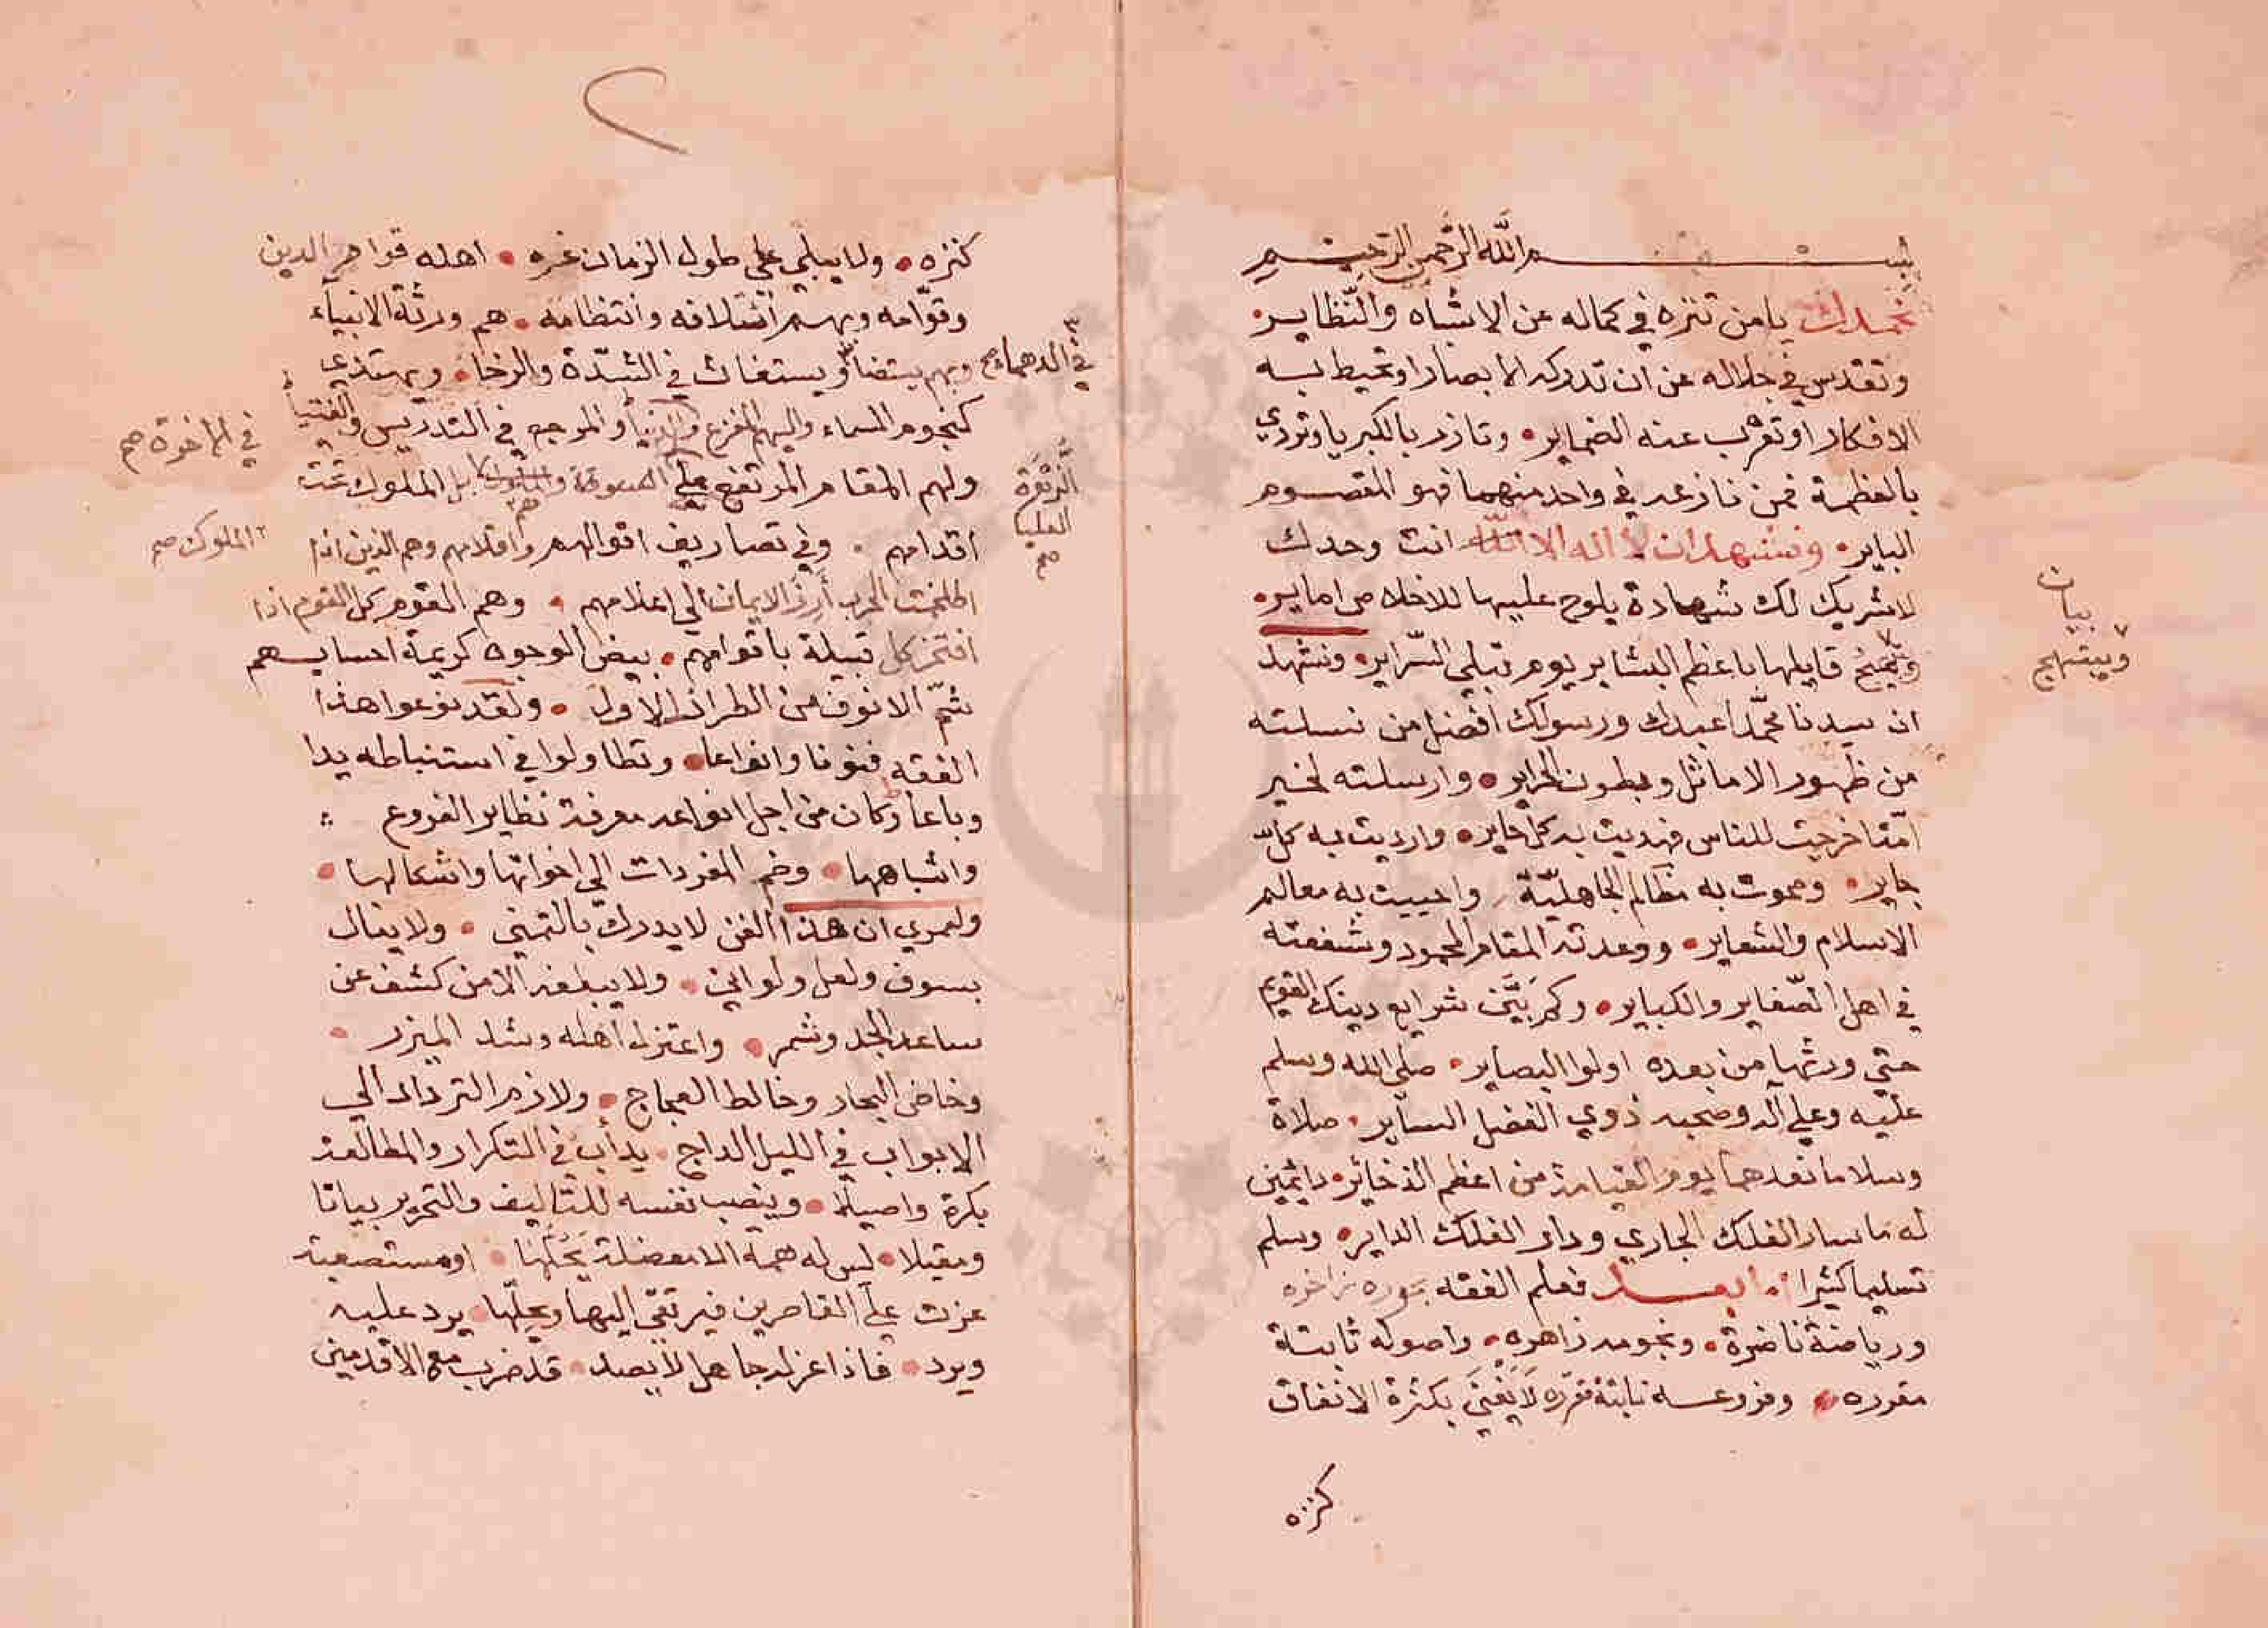 بسم الله الرحمن الرحيم
نحمدك يا من تنزه في كماله عن الاشباه والنظاير
وتقدس في جلاله عن ان تدركه الابصار او تحيط به
الافكار او تعزب عنه الضماير وتازر بالكبريا وتردي
بالعظمة فمن نازعه في واحد منهما فهو المقصوم
الباير ونشهد ان لا اله الا الله انت وحدك
لا شريك لك شهادة يلوح عليها للاخلاص اماير
قايلها باعظم البشاير يوم تبلى السراير ونشهد
بيان
ويبتهج
ان سيدنا محمدا عبدك ورسولك افضل من نسلته
من ظهور الاماثل وبطون الحراير وارسلته لخير
امة اخرجت للناس فهديت به كل حاير وارديت به كل
جاير ومحوت به مظالم الجاهلية واحييت به معالم
الاسلام والشعاير ووعدته المقام المحمود وشفعته
في اهل الصغاير والكباير وكم بين شرايع دينك القويم
حتى ورثها من بعده اولوا البصاير صلى الله وسلم
عليه وعلى آله وصحبه ذوي الفضل الساير صلاة
وسلاما نعدهما يوم القيامة من اعظم الذخائر دايمين
له ما سار الفلك الجاري ودار الفلك الداير وسلم
تسليما كثيرا اما بعد فعلم الفقه بحوره زاخره
ورياضة ناضرة ونجومه زاهره واصوله ثابتة
مقرره وفروعه نابتة لا يفنى بكثرة الانفاق
كنزه
كنزه ولا يبلى على طول الزمان عزه اهله قوام الدين
وقوامه وبهم ائتلافه وانتظامه هم ورثة الانبياء
وبهم يستضا ويستغاث في الشدة والرخا ويهتدي
في الدهماء صح
كنجوم السماء واليهم المفزع والمرجع في التدريس والفتيا
في الاخرة صح
ولهم المقام المرتفع على بل الملوك تحت
الزهرة
العليا
صح
اقدامهم وفي تصاريف اقوالهم واقلامهم وهم الذين اذا
الملوك صح
الحرب أرز الايمان الى اعلامهم وهم القوم كل القوم اذا
افتخر كل قبيلة باقوامهم بيض الوجوه كريمة احسابهم
شم الانوف من الطراز الاول ولقد نوعوا هذا
الفقه فنونا وانواعا وتطاولوا في استنباطه يدا
وباعا وكان من اجل انواعه معرفة نظاير الفروع
واشباهها وضم المفردات الى اخواتها واشكالها
ولعمري ان هذا الفن لا يدرك بالتمني ولا ينال
بسوف ولعل ولو اني ولا يبلغه الا من كشف عن
ساعد الجد وشمر واعتزل اهله وشد الميزر
وخاض البحار وخالط العجاج ولازم الترداد الى
الابواب في الليل الداج يدأب في التكرار والمطالعة
بكرة واصيلا وينصب نفسه للتاليف والتحرير بياتا
ومقيلا ليس له همة الا معضلة يحلها او مستصعبة
عزت على القاصرين فيرتقي اليها ويحلها يرد عليه
ويرد فاذا عزله جاهل لا يصد قد ضرب مع الاقدمين